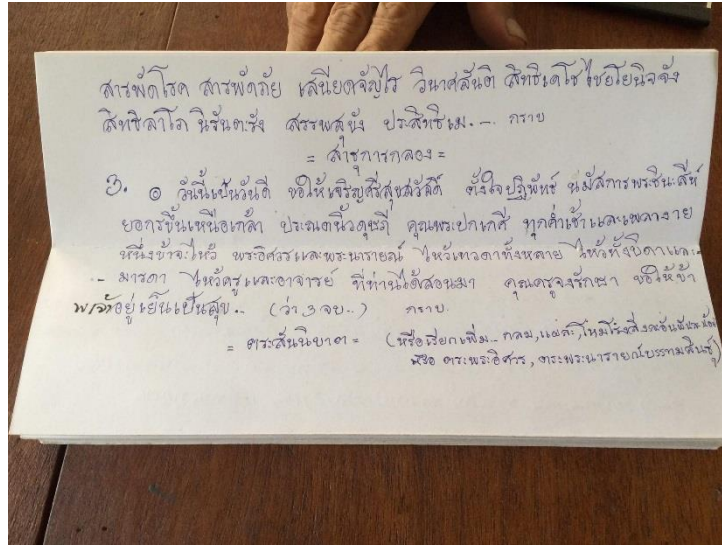 สารพัดโรค สารพัดภัย เสนียดจัญไร วินาศสันติ สิทธิเตโช ไชยโยนิจจัง
สิทธิลาโภ นิรันตะรัง สรรพสุขัง ประสิทธิเม. — กราบ
= สาธุการกลอง =
3. ๏ วันนี้เป็นวันดี ขอให้เจริญศรีสุขสวัสดิ์ ตั้งใจปฏิพัทธ์ นมัสการพระชินะสีห์
ยอกรขึ้นเหนือเกล้า ประณตนิ้วดุษฎี คุณพระปกเกศี ทุกค่ำเช้าและเพลางาย
หนึ่งข้าจะไหว้ พระอิศวรและพระนารายณ์ ไหว้เทวดาทั้งหลาย ไหว้ทั้งบิดาและ
- มารดา ไหว้ครูและอาจารย์ ที่ท่านได้สอนมา คุณครูจงรักษา ขอให้ข้า
พเจ้าอยู่เย็นเป็นสุข.. (ว่า 3 จบ..) กราบ
= ตระสันนิบาต = (หรือเรียกเพิ่ม.. กลม,
หรือ ตระพระอิศวร, ตระพระนารายณ์บรรทมสินธุ์)